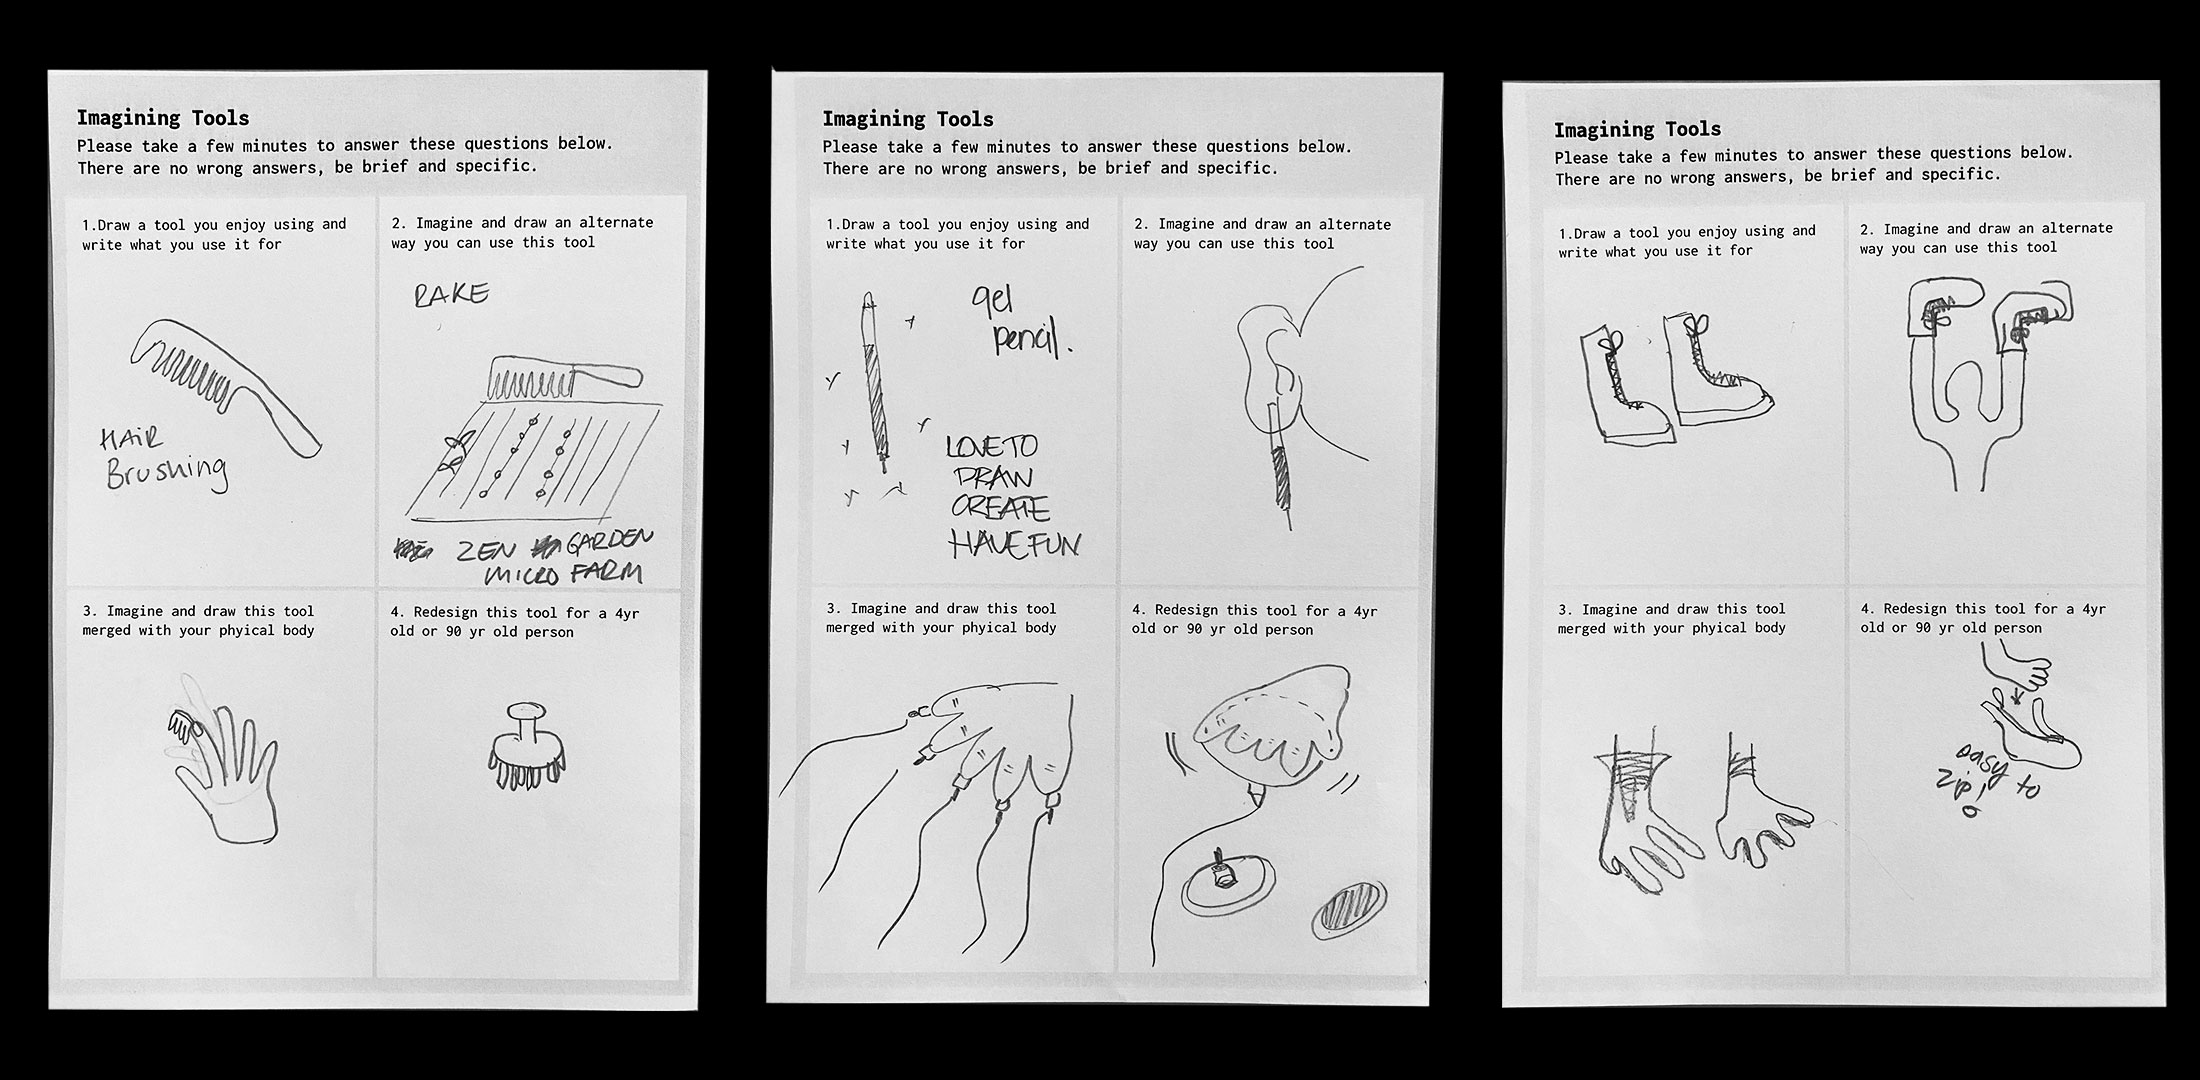 Imagining Tools
Please take a few minutes to answer these questions below.
There are no wrong answers, be brief and specific.
1.Draw a tool you enjoy using and
write what you use it for
HAIR
Brushing
2. Imagine and draw an alternate
way you can use this tool
RAKE
ZEN GARDEN
MICRO FARM
3. Imagine and draw this tool
merged with your phyical body
4. Redesign this tool for a 4yr
old or 90 yr old person
Imagining Tools
Please take a few minutes to answer these questions below.
There are no wrong answers, be brief and specific.
1.Draw a tool you enjoy using and
write what you use it for
gel
pencil.
LOVE TO
DRAW
CREATE
HAVE FUN
2. Imagine and draw an alternate
way you can use this tool
3. Imagine and draw this tool
merged with your phyical body
4. Redesign this tool for a 4yr
old or 90 yr old person
Imagining Tools
Please take a few minutes to answer these questions below.
There are no wrong answers, be brief and specific.
1.Draw a tool you enjoy using and
write what you use it for
2. Imagine and draw an alternate
way you can use this tool
3. Imagine and draw this tool
merged with your phyical body
4. Redesign this tool for a 4yr
old or 90 yr old person
easy to
zip!